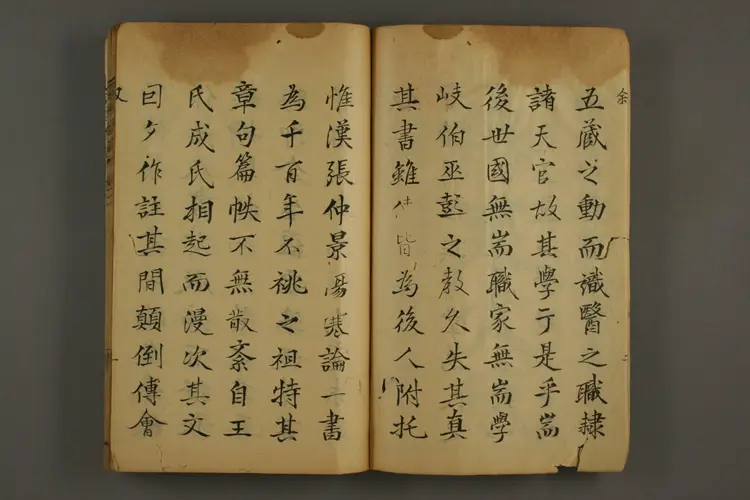 五藏之動而識醫之職隸
諸天官故其學于是乎耑
後世國無耑職家無耑學
岐伯巫彭之教久失其真
其書雖 皆為後人附托
惟漢張仲景傷寒論一書
為千百年不祧之祖特其
章句篇帙不無散紊自王
氏成氏相起而漫次其文
因之作註其間顛倒傳會